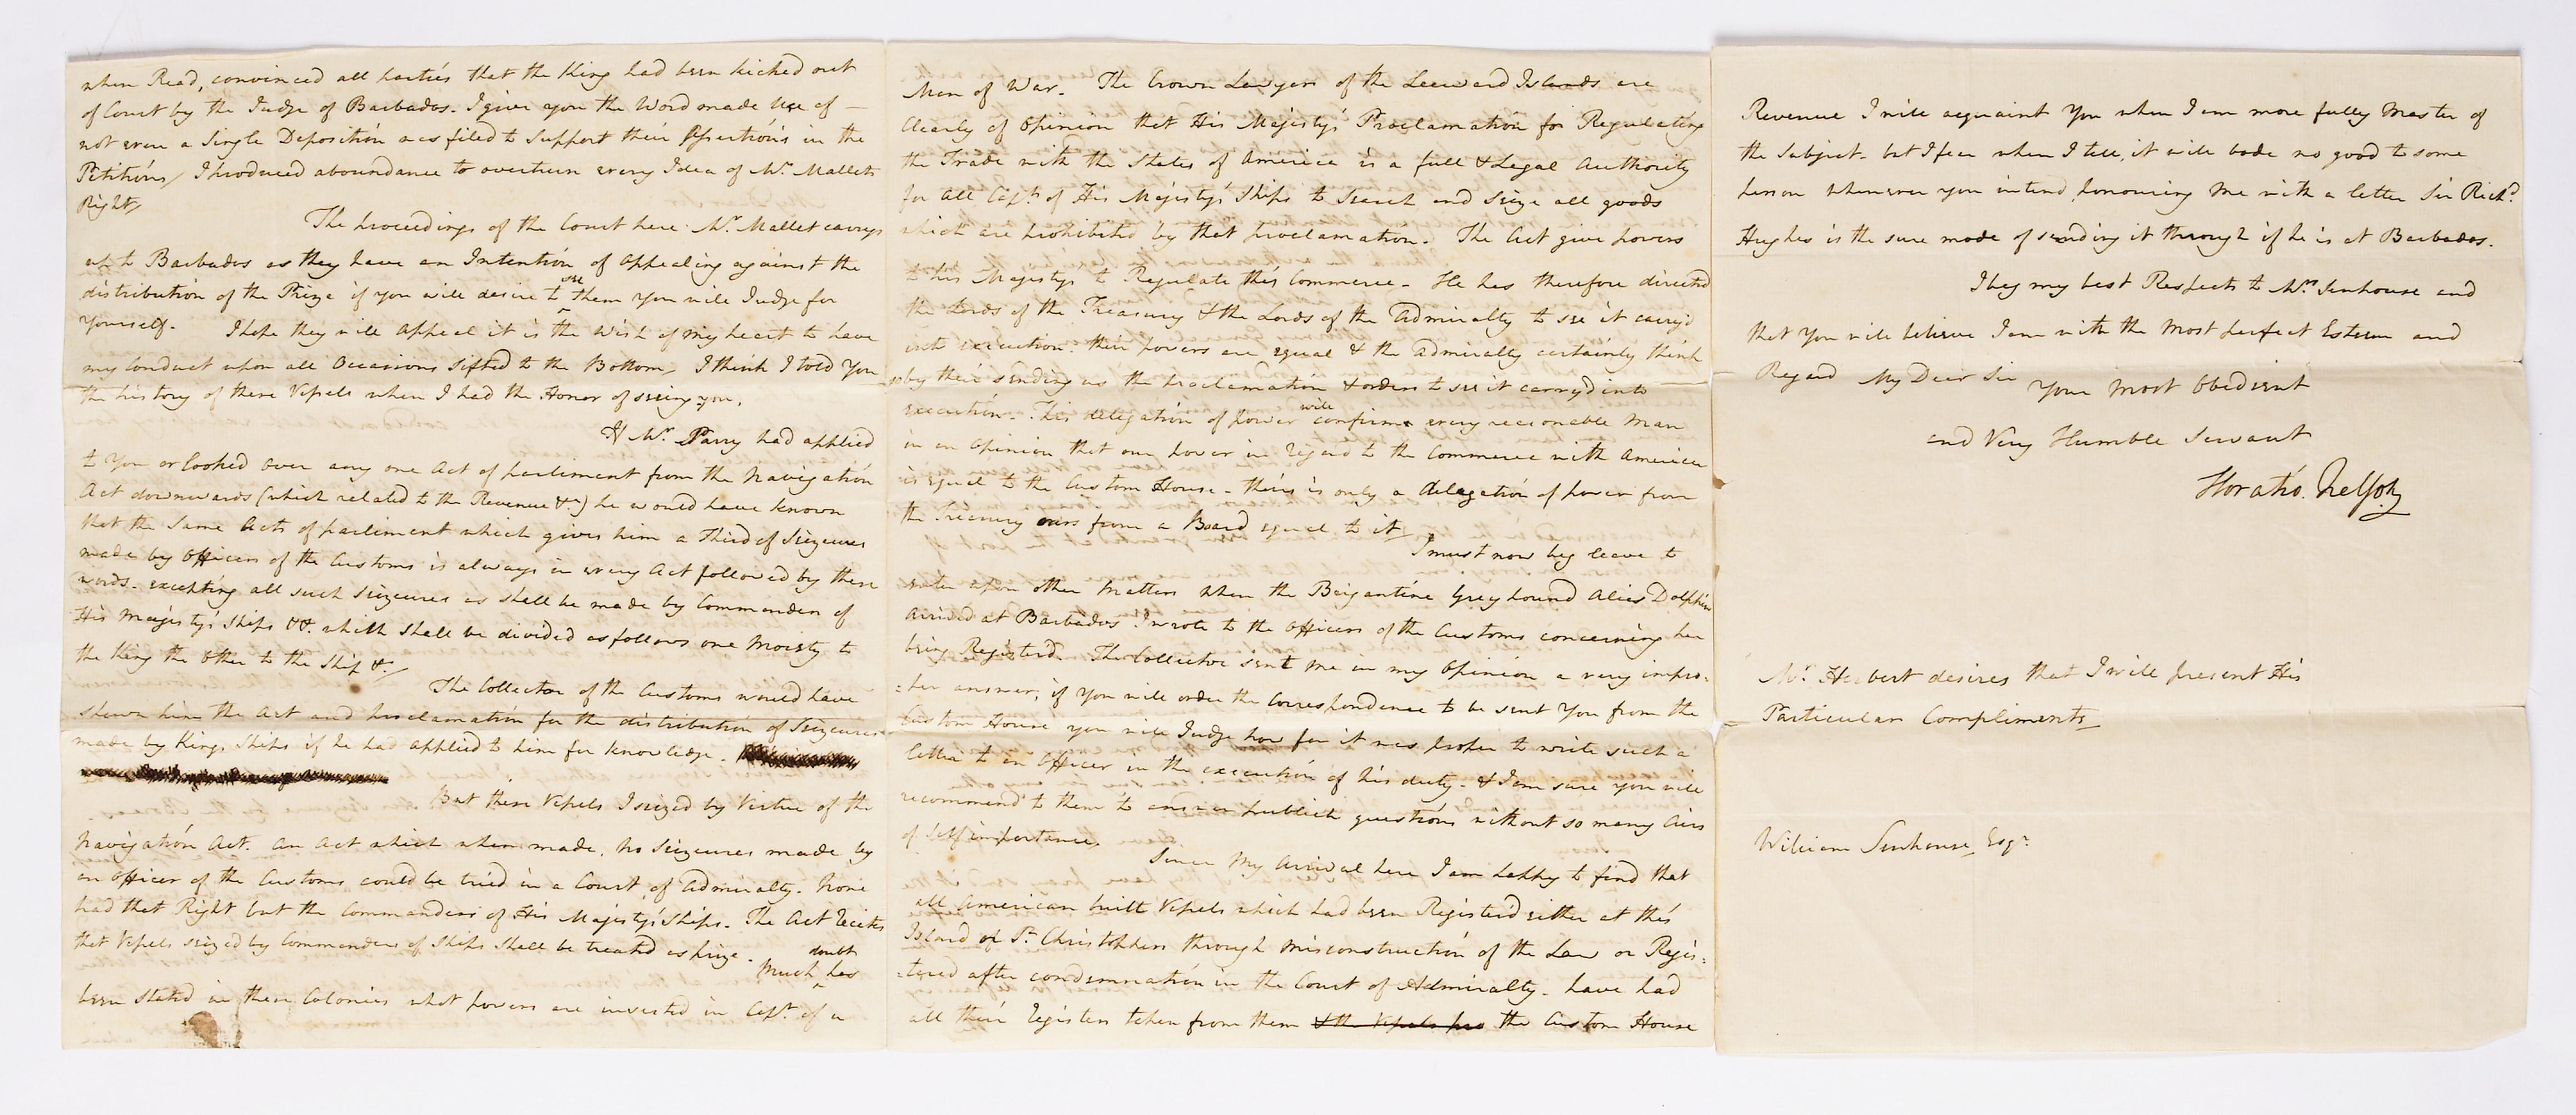 when Read, convinced all parties that the King had been kicked out
of Court by the Judge of Barbados. I give you the Word made Use of —
not even a Single Deposition was filed to Support their Assertions in the
Petitions, I produced aboundance to overturn every Idea of Mr. Mallets
Right,
The proceedings of the Court here Mr. Mallet carrys
up to Barbados as they have an Intention of Appealing against the
distribution of the Prize if you will desire to see them You will Judge for
Yourself. I hope they will Appeal it is the Wish of my heart to have
my Conduct upon all Occasions Sifted to the Bottom, I think I told You
the history of these Vessels when I had the Honor of seeing you.
If Mr. Parry had applied
to You or looked over any one Act of parliment from the Navigation
Act downwards (which related to the Revenue &c.) he would have known
that the Same Acts of parliment which gives him a Third of Seizeures
made by Officers of the Customs is always in every Act followed by these
words. excepting all such Seizeures as shall be made by Commanders of
His Majestys Ships &c. which shall be divided as follows one Moiety to
the King the Other to the Ship &c.
The Collector of the Customs would have
shewn him the Act and proclamation for the distribution of Seizeures
made by Kings Ships if he had applied to him for knowledge.
But these Vessels I seized by Virtue of the
Navigation Act. An Act which when made, no Seizeures made by
an Officer of the Customs could be tried in a Court of Admiralty. None
had that Right but the Commanders of His Majestys Ships. The Act recites
that Vessels seized by Commanders of Ships Shall be treated as prize.
Much doubt has
been stated in these Colonies what powers are invested in Capt. of a
Men of War. The Crown Lawyers of the Leeward Islands are
Clearly of Opinion that His Majestys Proclamation for Regulating
the Trade with the States of America is a full & Legal Authority
for All Capts. of His Majestys Ships to Search and Seize all goods
which are prohibited by that proclamation. The Act give powers
to his Majesty to Regulate this Commerce. He has therefore directed
the Lords of the Treasury & the Lords of the Admiralty to see it carry'd
into execution. their powers are equal & the Admiralty certainly think
so by their sending us the proclamation & orders to see it carryd into
execution. This delegation of power will confirm every reasonable Man
in an Opinion that our power in regard to the Commerce with America
is equal to the Custom House. theirs is only a delegation of power from
the Treasury ours from a Board equal to it
I must now beg leave to
enter upon other Matters when the Brigantine Greyhound Alias Dolphin
arrived at Barbados I wrote to the Officers of the Customs concerning her
being Registerd. The Collector sent me in my Opinion a very impro-
-per answer; if you will order the Correspondence to be sent You from the
Custom House you will Judge how far it was proper to write such a
letter to an Officer in the execution of his duty. & I am sure you will
recommend to them to answer publick questions without so many Airs
of Self importance.
Since My Arrival here I am happy to find that
all American built Vessels which had been Register'd either at this
Island or St. Christophers through Misconstruction of the Law or Regis-
-tered after condemnation in the Court of Admiralty. have had
all their registers taken from them & the Vessels pro the Custom House
Revenue I will acquaint You when I am more fully Master of
the Subject. but I fear when I tell, it will bode no good to some
person whenever you intend honouring me with a letter Sir Richd.
Hughes is the sure mode of sending it through if he is at Barbados.
I beg my best Respects to Mrs. Senhouse and
that You will believe I am with the Most perfect Esteem and
Regard My Dear Sir Your Most Obedient
and Very Humble Servant
Horatio Nelson
Mr. Herbert desires that I will present His
Particular Compliments
William Senhouse, Esqr.